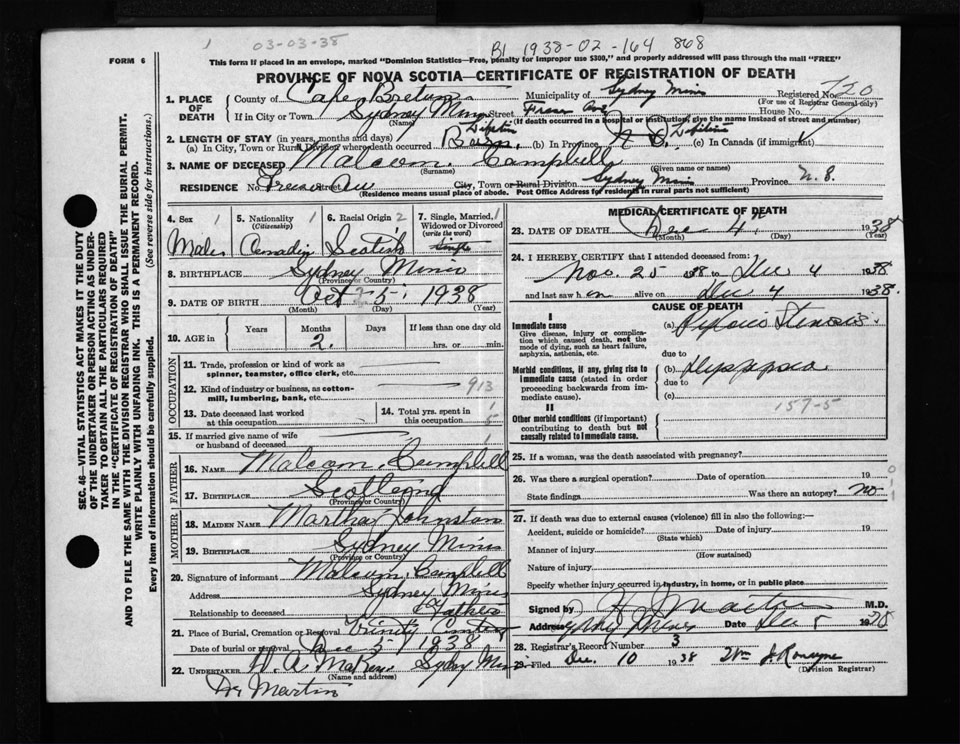 03-03-38
B1 1938-02-164 868
FORM 6
This form if placed in an envelope, marked "Dominion Statistics—Free, penalty for improper use $300," and properly addressed will pass through the mail "FREE"
PROVINCE OF NOVA SCOTIA—CERTIFICATE OF REGISTRATION OF DEATH
SEC. 46—VITAL STATISTICS ACT MAKES IT THE DUTY
OF THE UNDERTAKER OR PERSON ACTING AS UNDERTAKER TO OBTAIN ALL THE PARTICULARS REQUIRED
IN THE "CERTIFICATE OF REGISTRATION OF DEATH"
AND TO FILE THE SAME WITH THE DIVISION REGISTRAR WHO SHALL ISSUE THE BURIAL PERMIT.
WRITE PLAINLY WITH UNFADING INK. THIS IS A PERMANENT RECORD.
Every item of information should be carefully supplied. (See reverse side for instructions.)
1. PLACE OF DEATH
County of Cape Breton Municipality of Sydney Mines Registered No. 720
(For use of Registrar General only)
If in City or Town Sydney Mines Street Fraser Ave House No.
(Name) (If death occurred in a hospital or institution, give the name instead of street and number)
2. LENGTH OF STAY (in years, months and days)
(a) In City, Town or Rural Division where death occurred Born (b) In Province (c) In Canada (if immigrant)
3. NAME OF DECEASED Malcom Campbell
(Surname) (Given name or names)
RESIDENCE No. Fraser Ave City, Town or Rural Division Sydney Mines Province N.S.
(Residence means usual place of abode. Post Office Address for residents in rural parts not sufficient)
4. Sex 1 5. Nationality 1 6. Racial Origin 2 7. Single, Married, 1
(Citizenship) Widowed or Divorced
(write the word)
Male Canadian Scottish Single
8. BIRTHPLACE Sydney Mines
(Province or Country)
9. DATE OF BIRTH Oct 5 1938
(Month) (Day) (Year)
10. AGE in Years Months Days If less than one day old
2 hrs. or min.
OCCUPATION
11. Trade, profession or kind of work as
spinner, teamster, office clerk, etc.
12. Kind of industry or business, as cotton-
mill, lumbering, bank, etc. 913
13. Date deceased last worked
at this occupation
14. Total yrs. spent in
this occupation
15. If married give name of wife
or husband of deceased
FATHER
16. NAME Malcom Campbell
17. BIRTHPLACE Scotland
(Province or Country)
MOTHER
18. MAIDEN NAME Martha Johnston
19. BIRTHPLACE Sydney Mines
(Province or Country)
20. Signature of informant Malcom Campbell
Address Sydney Mines
Relationship to deceased Father
21. Place of Burial, Cremation or Removal Trinity
Date of burial or removal Dec 5 1938
22. UNDERTAKER Sydney Mines
(Name and address)
Dr Martin
MEDICAL CERTIFICATE OF DEATH
23. DATE OF DEATH Dec 4 1938
(Month) (Day) (Year)
24. I HEREBY CERTIFY that I attended deceased from:
Nov. 25 38 to Dec 4 1938
and last saw him alive on Dec 4 1938.
CAUSE OF DEATH
I
Immediate cause (a) Pyloric Stenosis
Give disease, injury or complica-
tion which caused death, not the
mode of dying, such as heart failure,
asphyxia, asthenia, etc.
due to
Morbid conditions, if any, giving rise to
immediate cause (stated in order
proceeding backwards from im-
mediate cause).
(b)
due to
(c)
157-5
II
Other morbid conditions (if important)
contributing to death but not
causally related to immediate cause.
25. If a woman, was the death associated with pregnancy?
26. Was there a surgical operation? Date of operation 19
State findings Was there an autopsy? no
27. If death was due to external causes (violence) fill in also the following:—
Accident, suicide or homicide? Date of injury 19
(State which)
Manner of injury
(How sustained)
Nature of injury
Specify whether injury occurred in industry, in home, or in public place
Signed by M.D.
Address Sydney Mines Date Dec 5 1938
28. Registrar's Record Number 3
29. Filed Dec. 10 1938 Wm J Ronayne
(Division Registrar)